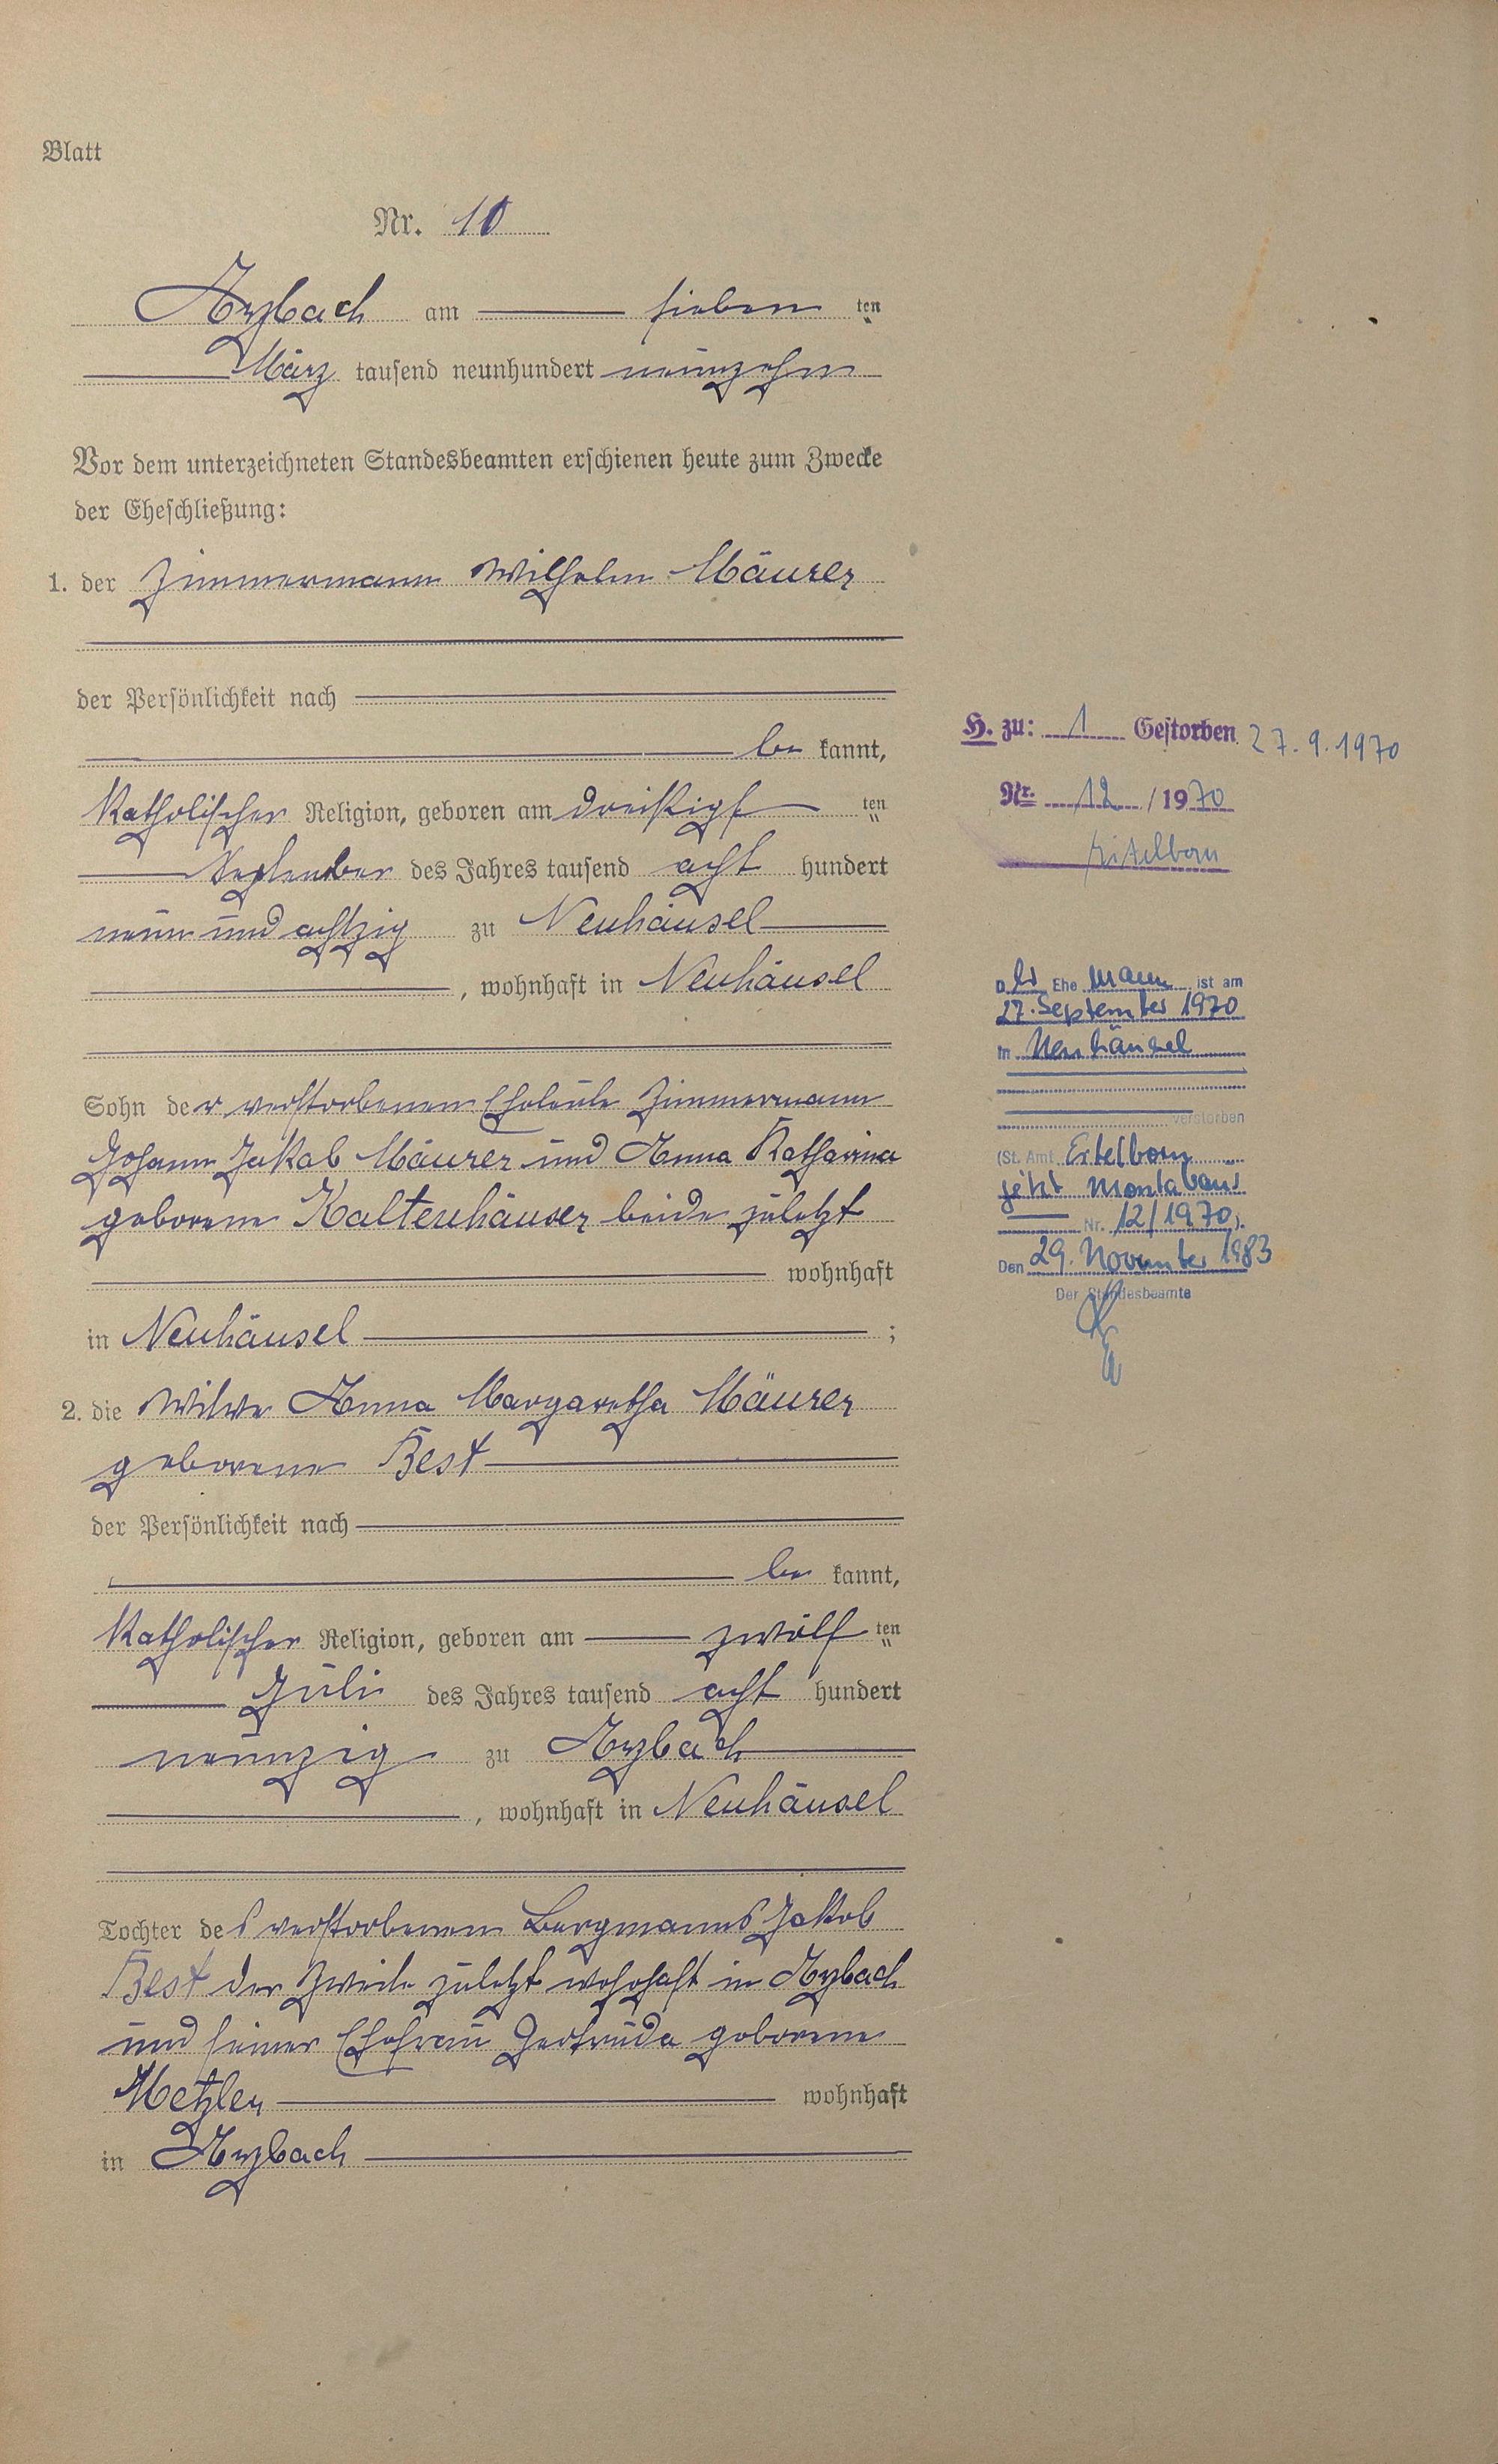 Blatt
Nr. 10
Arzbach am sieben ten
März tausend neunhundert neunzehn
Vor dem unterzeichneten Standesbeamten erschienen heute zum Zwecke
der Eheschließung:
1. der Zimmermann Wilhelm Mäurer
der Persönlichkeit nach
be kannt,
Katholischer Religion, geboren am dreißigs ten
September des Jahres tausend acht hundert
neun und achtzig zu Neuhäusel
, wohnhaft in Neuhäusel
Sohn der verstorbenen Eheleute Zimmermann
Johann Jakob Mäurer und Anna Katharina
geborene Kaltenhäuser beide zuletzt
wohnhaft
in Neuhäusel ;
2. die Witwe Anna Margaretha Mäurer
geborene Best
der Persönlichkeit nach
be kannt,
Katholischer Religion, geboren am zwölf ten
Juli des Jahres tausend acht hundert
neunzig zu Arzbach
, wohnhaft in Neuhäusel
Tochter des verstorbenen Bergmanns Jakob
Best der Zweite zuletzt wohnhaft in Arzbach
und seiner Ehefrau Gertruda geborene
Metzler wohnhaft
in Arzbach
H. zu: 1 Gestorben 27.9.1970
Nr. 12 / 1970
Eitelborn
Der Ehe mann ist am
27. September 1970
in Neuhäusel
verstorben
(St. Amt Eitelborn
jetzt Montabaur
Nr. 12/1970).
Den 29. November 1983
Der Standesbeamte